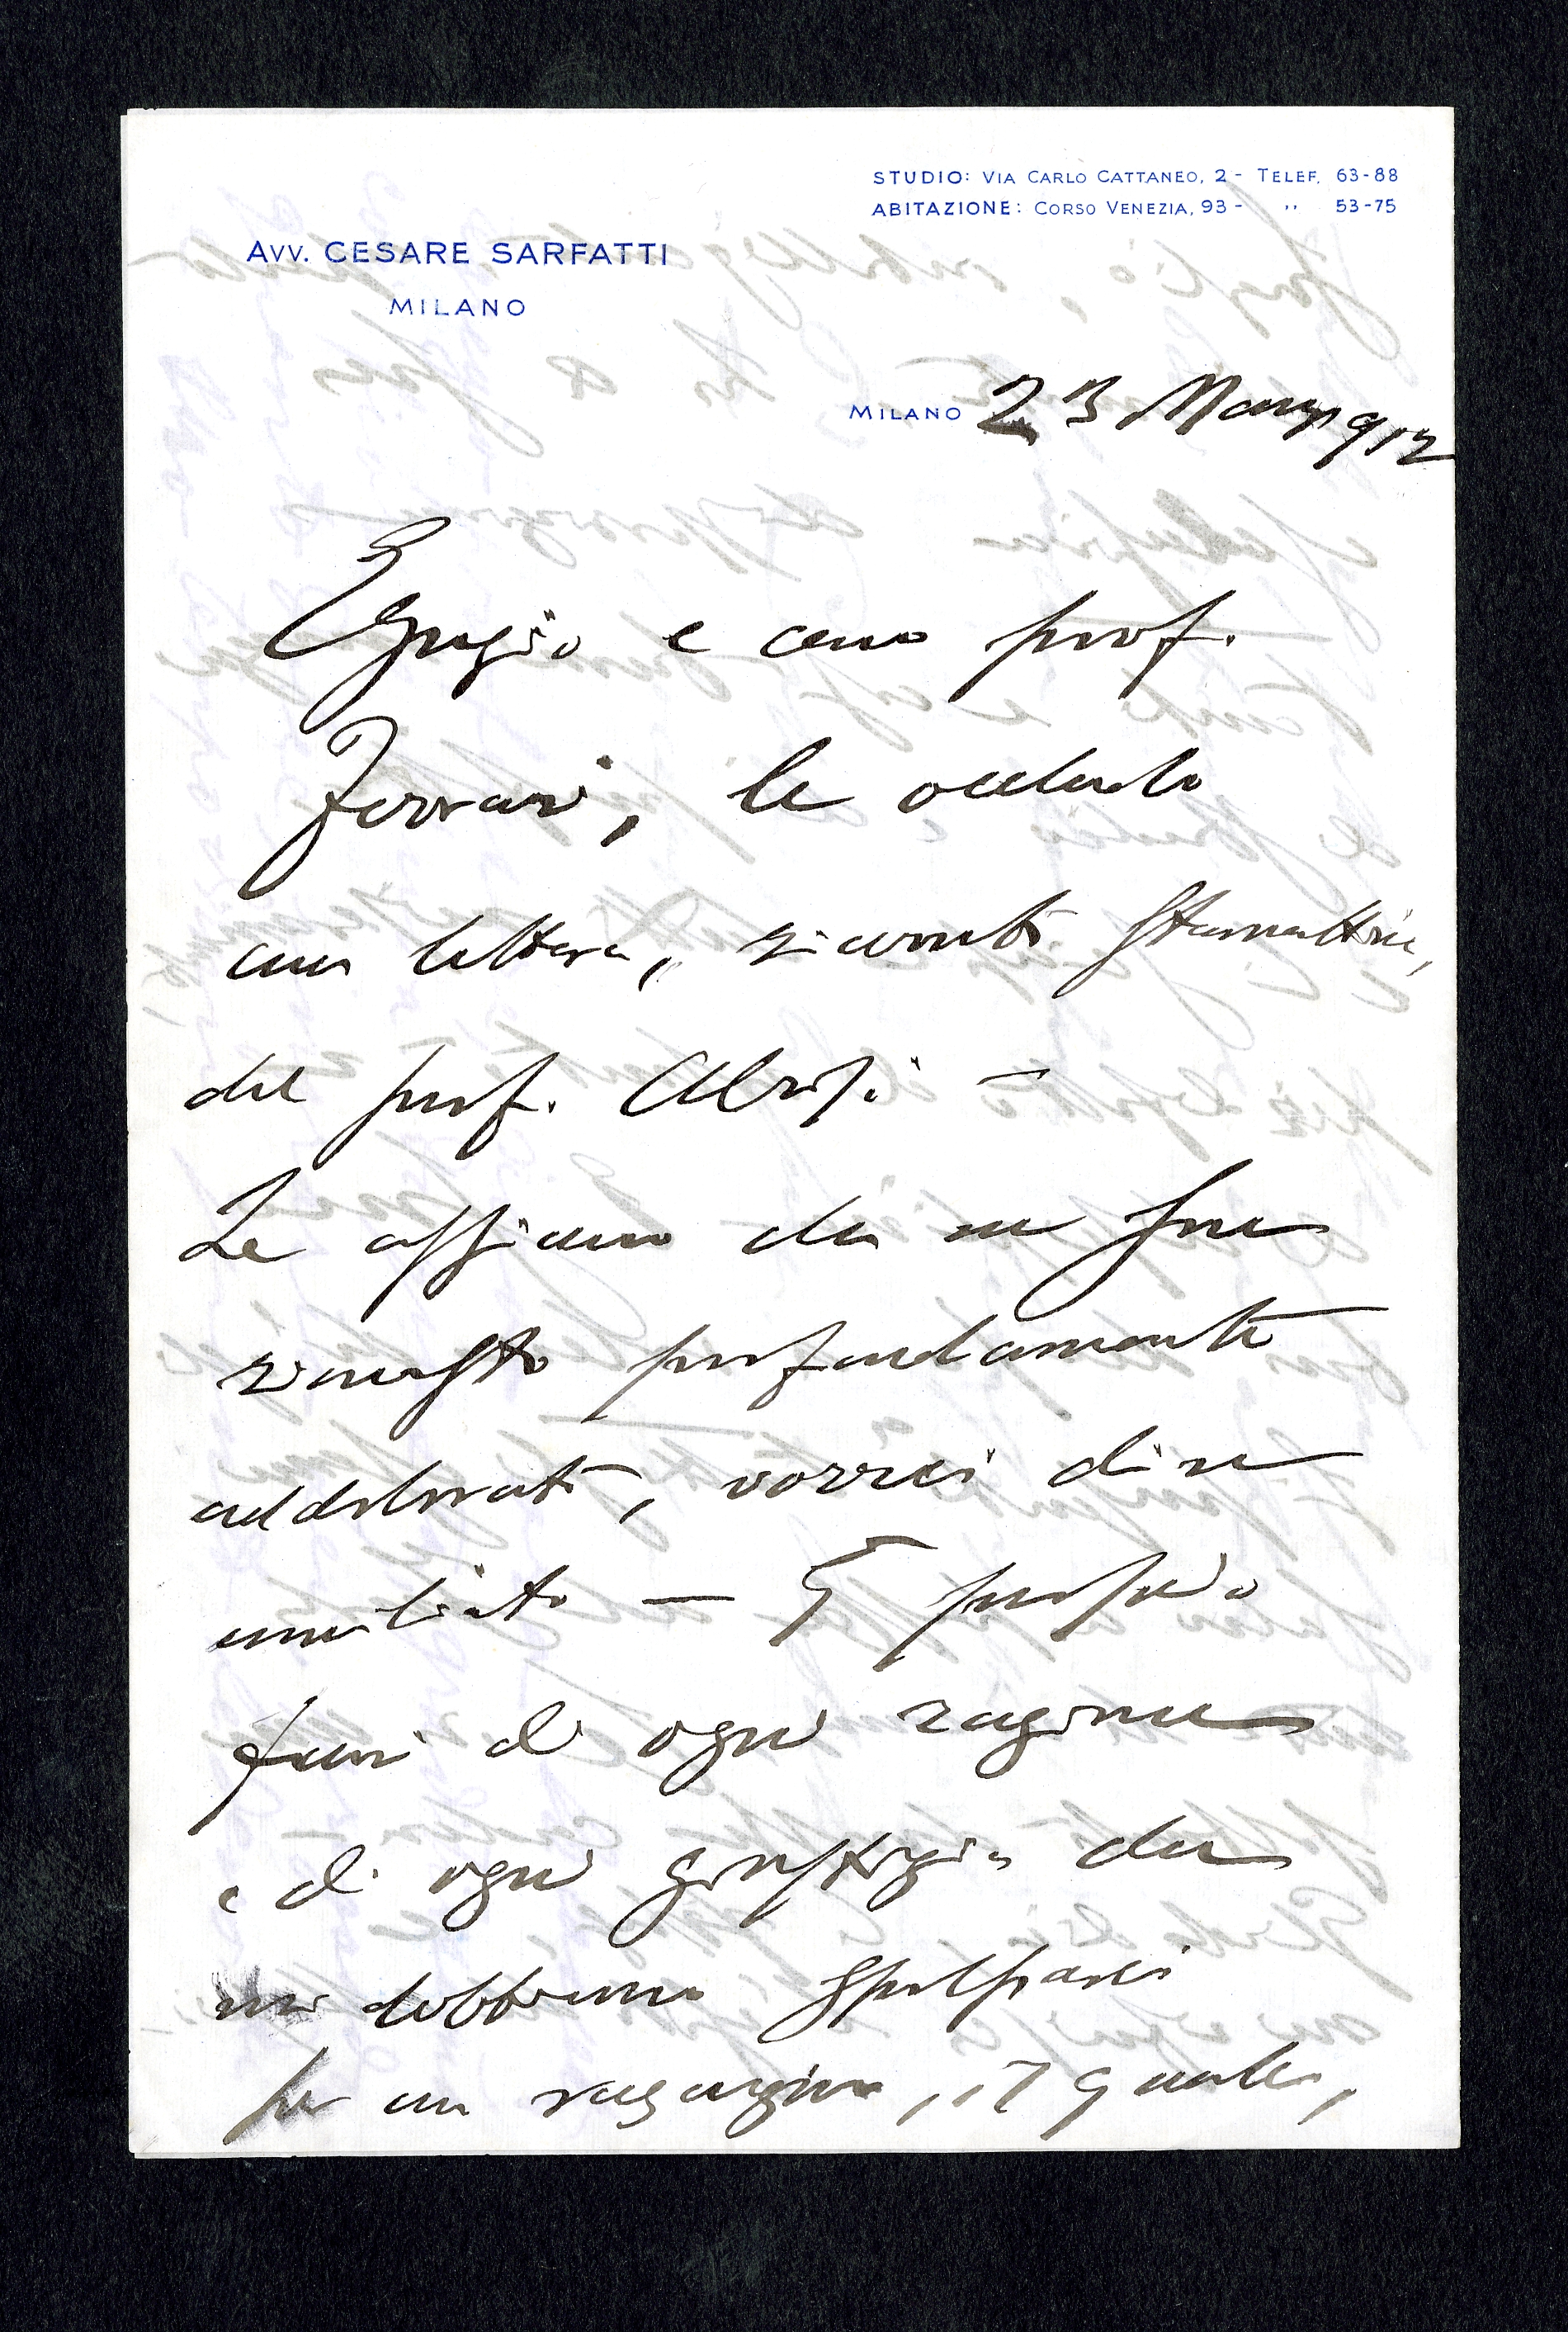 STUDIO: VIA CARLO CATTANEO, 2 - TELEF. 63-88
ABITAZIONE: CORSO VENEZIA, 93 - ,, 53-75
AVV. CESARE SARFATTI
MILANO
MILANO 23 Marzo 912
Egregio e caro prof.
Ferrari, le accludo
una lettera, ricevuta stamattina,
del prof.
Le assicuro che ne sono
rimasto profondamente
addolorato, vorrei dire
umiliato — È proprio
fuori di ogni ragione
e di ogni giustizia che
noi dobbiamo
per un ragazzino, il quale,